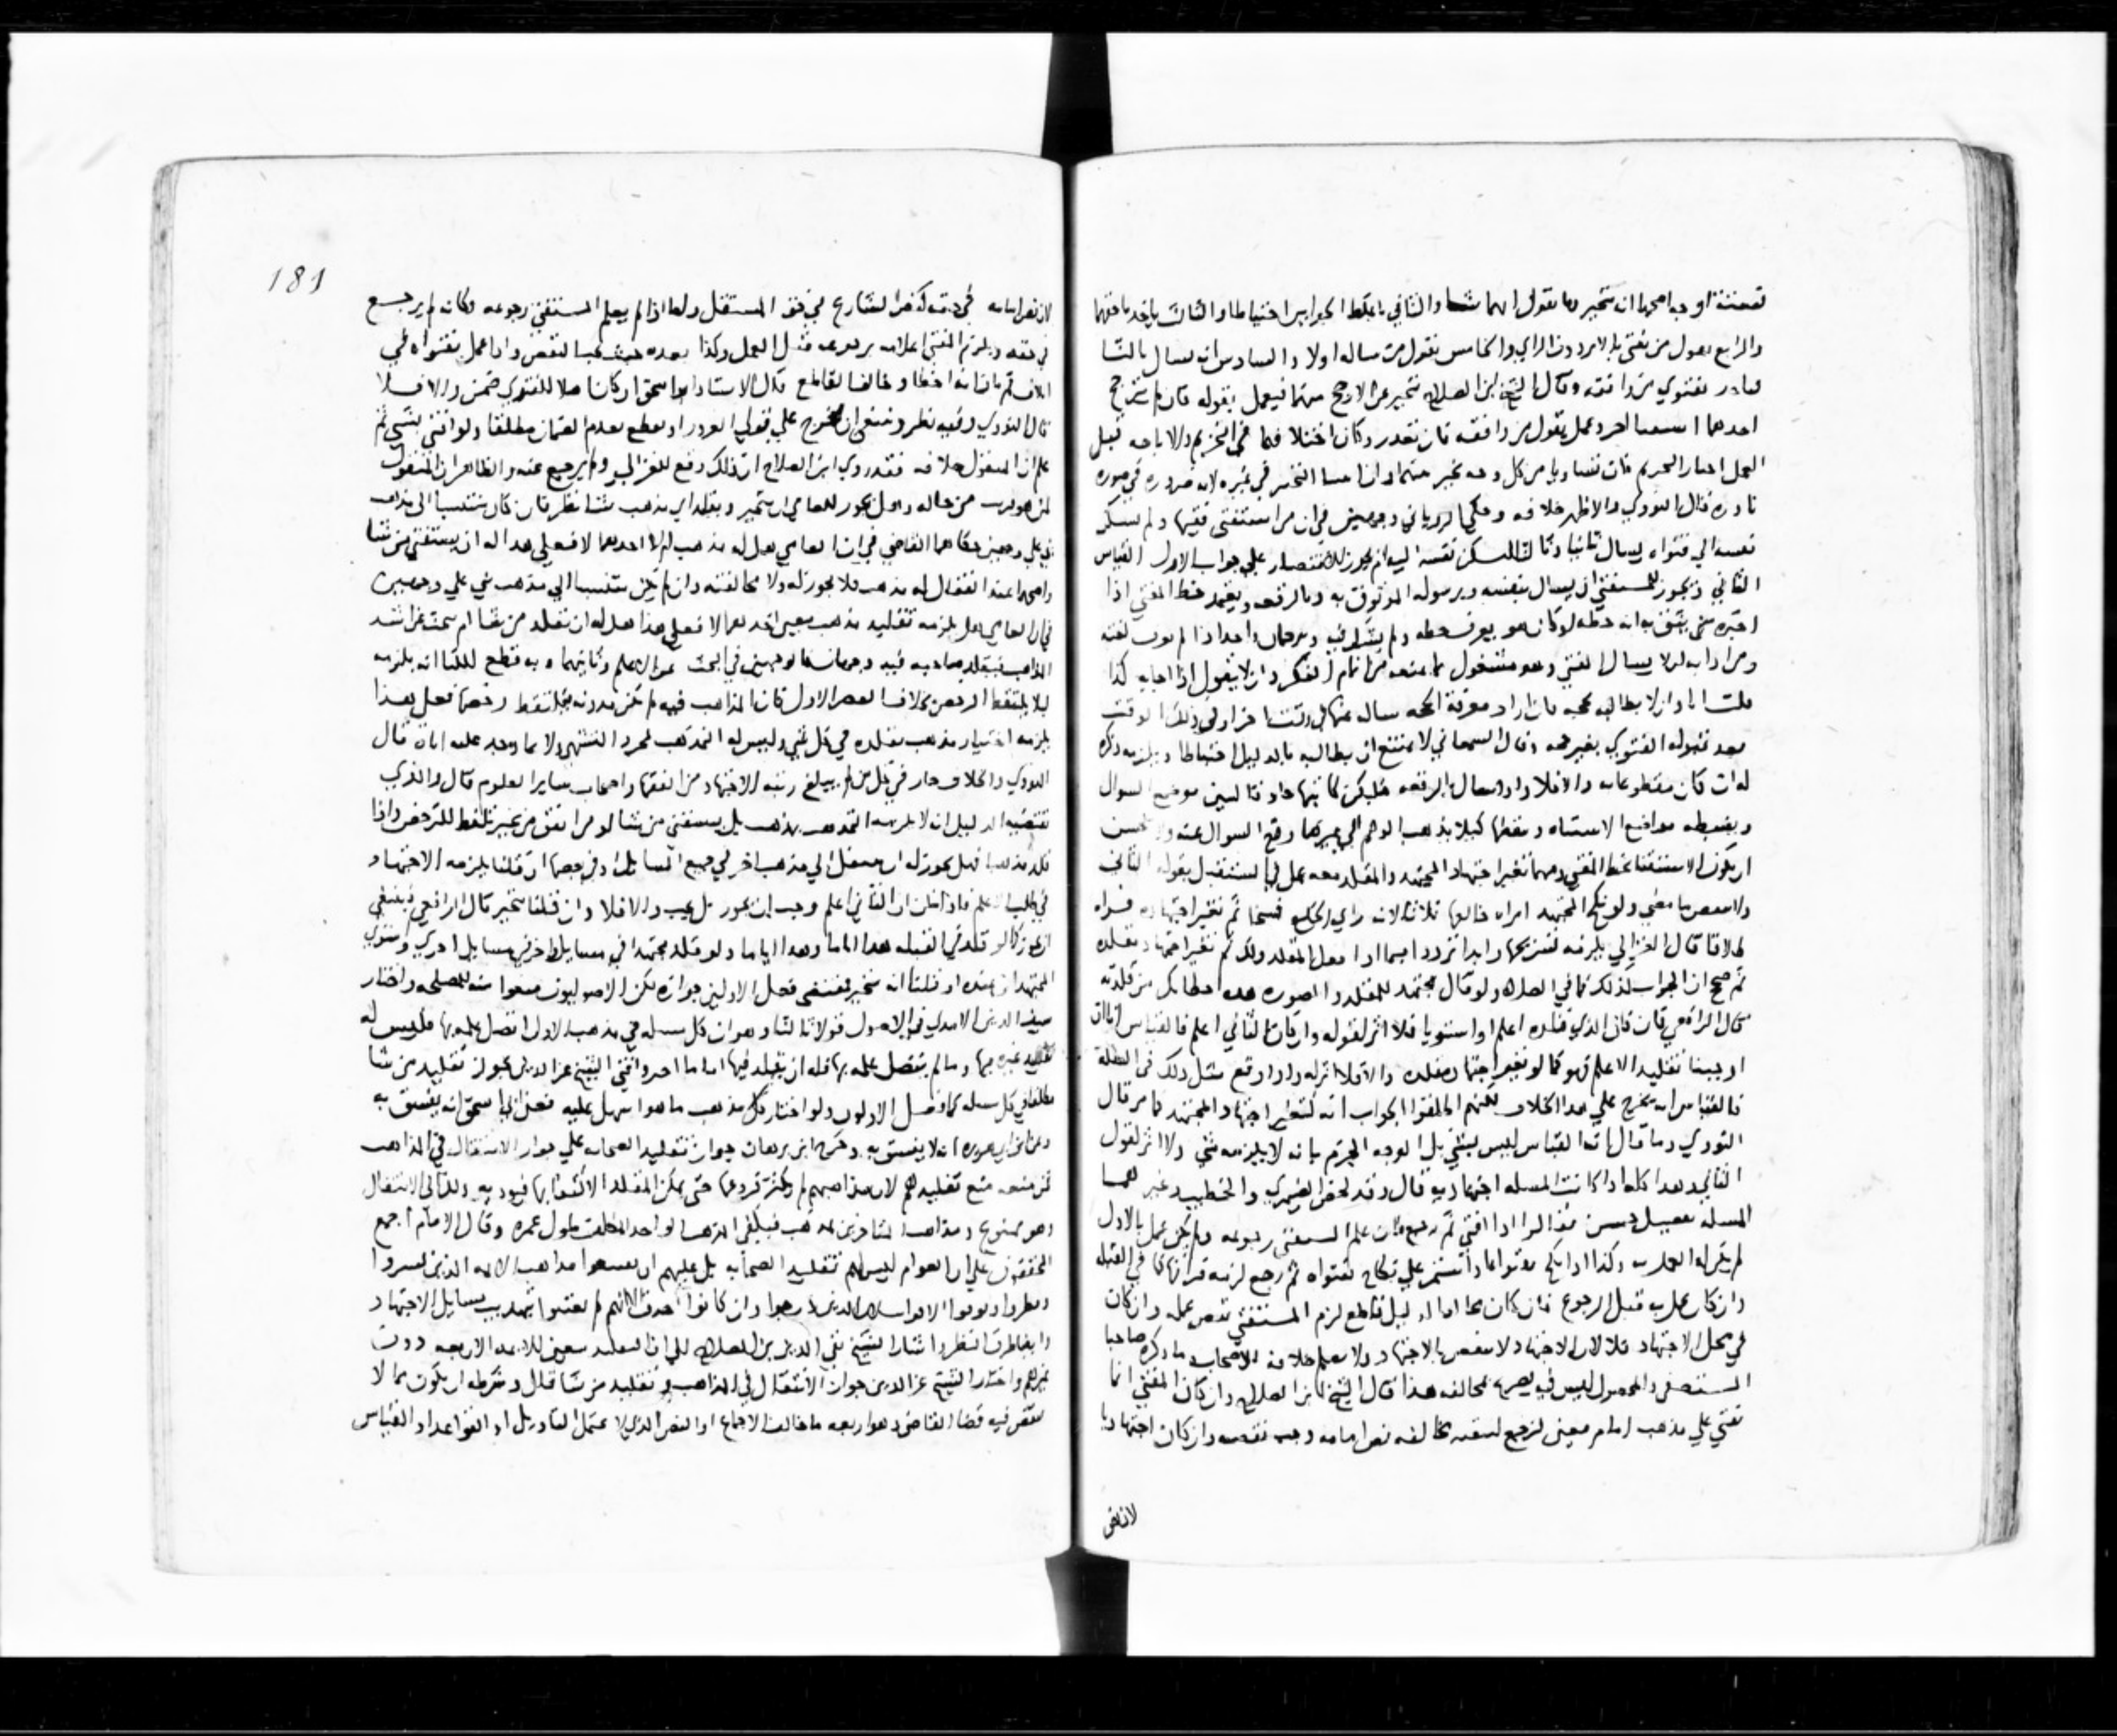 والثاني باغلظ الجوابين احتياطا والثالث ياخذ باخفهما
والرابع بقول من يفتي بالاثر دون الراي والخامس بقول من ساله اولا والسادس انه يسال ثالثا
بفتوي من وافقه وقال الشيخ ابن الصلاح يتخير عن الارجح منهما فيعمل بقوله فان لم يترجح
احدهما استفتا اخر وعمل بقول من وافقه فان تعذر وكان اختلافهما في التحريم والاباحه قبل
العمل اختار التحريم فان تساويا من كل وجه تخير بينهما وان ابينا التخيير في غيره لانه ضروره في صوره
نادره قال النووي والاظهر خلافه وحكي الروياني وجهين في ان من استفتى فقيها ولم تسكن
نفسه الي فتواه يسال ثانيا وثالثا لتسكن نفسه ام يجوز الاقتصار علي جواب الاول القياس
الثاني ويجوز للمستفتي ان يسال بنفسه وبرسوله الموثوق به وبالرقعه ويعتمد خط المفتي اذا
اخبره من يثق به انه خطه او كان هو يعرف خطه ولم يشك فيه وترجمان واحد اذا لم يعرف لغته
ومن ادابه ان لا يسال المفتي وهو مشغول بما يمنعه من تمام الفكر وان لا يقول اذا اجابه كذا
قلت انا وان لا يطالبه بحجه فان اراد معرفة الحجه ساله عنها في وقت اخر او في ذلك الوقت
بعد قبوله الفتوي بغير حجه وقال السمعاني لا يمتنع ان يطالبه بالدليل احتياطا ويلزمه ذكره
له ان كان مقطوعا به والا فلا واذا سال بالرقعه فليكن كاتبها حاذقا ليبين موضع السوال
وينقط مواضع الاشتباه كيلا يذهب الوهم الي غير ما وقع السوال عنه
ان يكون الاستفتا بخط المفتي ومهما تغير اجتهاد المجتهد والمقلد معه عمل في المستقبل بقوله الثاني
ولا ينقض ما مضي ولو نكح المجتهد امراه خالعها ثلاثا لانه راي الخلع فسخا ثم تغير اجتهاده فراه
طلاقا قال الغزالي يلزمه تسريحها وابدا ترددا فيما اذا فعل المقلد ذلك ثم تغير اجتهاد مقلده
ثم صحح ان الجواب كذلك كما في الصلاه ولو قال مجتهد للمقلد والصوره هذه اخطا بك من قلدته
قال الرافعي فان كان الذي قلده اعلم او استويا فلا اثر لقوله وان كان الثاني اعلم فالقياس انا ان
اوجبنا تقليد الاعلم فهو كما لو تغير اجتهاد مقلده والا فلا اثر له ولو وقع مثل ذلك في القبله
فالقياس انه يخرج علي هذا الخلاف لكنهم اطلقوا الجواب انه كتغير اجتهاد المجتهد كما مر قال
النووي وما قال انه القياس ليس بشي بل الوجه الجزم بانه لا يلزمه شي ولا اثر لقول
الثاني وهذا كله اذا كانت المسله اجتهاديه قال وقد لخص الصيمري والخطيب وغيرهما
المسله بتفصيل حسن فقالوا اذا افتى ثم رجع فان علم المستفتي رجوعه ولم يكن عمل بالاول
لم يجز له العمل به وكذا اذا نكح بفتواه او استمر علي نكاح بفتواه ثم رجع لزمه فراقها كما في القبله
وان كان عمل به قبل الرجوع فان كان مخالفا لدليل قاطع لزم المستفتي نقض عمله وان كان
في محل الاجتهاد فلا لان الاجتهاد لا ينقض بالاجتهاد ولا نعلم خلافه للاصحاب وما ذكره صاحبا
المستصفى والمحصول ليس فيه تصريح بمخالفة هذا قال الشيخ ابن الصلاح وان كان المفتي انما
يفتي علي مذهب امام معين فرجع لتيقنه مخالفه نص امامه وجب نقضه وان كان اجتهاديا
لان نص
181
لان نص امامه في حقه كنص الشارع في حق المستقل واما اذا لم يعلم المستفتي رجوعه فكانه لم يرجع
في حقه ويلزم المفتي اعلامه برجوعه قبل العمل وكذا بعده حيث يجب النقض واذا عمل بفتواه في
اتلاف ثم بان انه اخطا وخالف القاطع قال الاستاذ ابو اسحق ان كان اهلا للفتوي ضمن والا فلا
قال النووي وفيه نظر وينبغي ان يخرج علي قولي الغرور او يقطع بعدم الضمان مطلقا ولو افتى بشي ثم
علم ان المنقول خلافه فقد روي ابن الصلاح ان ذلك وقع للغزالي ولم يرجع عنه والظاهر ان المنقول
من حاله وهل يجوز للعامي ان يتخير ويقلد اي مذهب شا نظر فان كان منتسبا الي مذهب
بني علي وجهين حكاهما القاضي في ان العامي هل له مذهب ام لا احدهما لا فعلي هذا له ان يستفتي من شا
واصحهما عند القفال له مذهب فلا يجوز له مخالفته وان لم يكن منتسبا الي مذهب بني علي وجهين
في ان العامي هل يلزمه تقليد مذهب معين احدهما لا فعلي هذا هل له ان يقلد من شا ام يبحث عن اشد
المذاهب فيقلد صاحبه فيه وجهان كالوجهين في البحث عن الاعلم وثانيهما وبه قطع الكيا انه يلزمه
ليلا يلتقط الرخص بخلاف العصر الاول فان المذاهب فيه لم تكن مدونه فتلتقط رخصها فعلي هذا
يلزمه اختيار مذهب يقلده في كل شي وليس له التمذهب بمجرد التشهي ولا بما وجد عليه اباه قال
النووي والخلاف جار في كل من لم يبلغ رتبه الاجتهاد من الفقها واصحاب ساير العلوم قال والذي
يقتضيه الدليل انه لا يلزمه التمذهب بمذهب بل يستفتي من شا او من اتفق من غير تلقط للترخص واذا
قلد مذهبا فهل يجوز له ان ينتقل الي مذهب اخر في جميع المسايل او في بعضها ان قلنا يلزمه الاجتهاد
في طلب الاعلم فاذا ظن ان الثاني اعلم وجب ان يجوز بل يجب والا فلا وان قلنا يتخير قال الرافعي فينبغي
ان يجوز كما لو قلد في القبله هذا اياما وهذا اياما ولو قلد مجتهدا في مسايل واخر في مسايل اخري واستوي
المجتهدان عنده او قلنا انه يتخير فمقتضى فعل الاولين جوازه لكن الاصوليون منعوا منه للمصلحه واختار
سيف الدين الامدي في الاصول قولا ثالثا وهو ان كل مسله في مذهب الاول اتصل عمله بها فليس له
تقليد غيره فيها وما لم يتصل عمله بها فله ان يقلد فيها اماما اخر وافتى الشيخ عز الدين بجواز تقليد من شا
في كل مسله كما فعل الاولون ولو اختار من كل مذهب ما هو اسهل عليه فعن ابي اسحق انه يفسق به
وعن ابن ابي هريره انه لا يفسق به وخرج ابن برهان جواز تقليد الصحابه علي جواز الانتقال في المذاهب
فمن منعه منع تقليدهم لان مذاهبهم لم تكثر فروعها حتى يمكن المقلد الاكتفا بها فيوديه ذلك الي الانتقال
وهو ممنوع ومذاهب المتاخرين تمهدت فيكفي المذهب الواحد المكلف طول عمره وقال الامام اجمع
المحققون علي ان العوام ليس لهم تقليد الصحابه بل عليهم ان يتبعوا مذاهب الايمه الذين سبروا
ونظروا وبوبوا الابواب لانهم لم يعتنوا بتهذيب مسايل الاجتهاد
وايضاح طرق النظر واشار الشيخ تقي الدين بن الصلاح الي ان التقليد يتعين للايمه الاربعه دون
غيرهم واختار الشيخ عز الدين جواز الانتقال في المذاهب وتقليد من شا قال وشرطه ان يكون مما لا
ينقض فيه قضا القاضي وهو اربعه ما خالف الاجماع او النص الذي لا يحتمل التاويل او القواعد او القياس